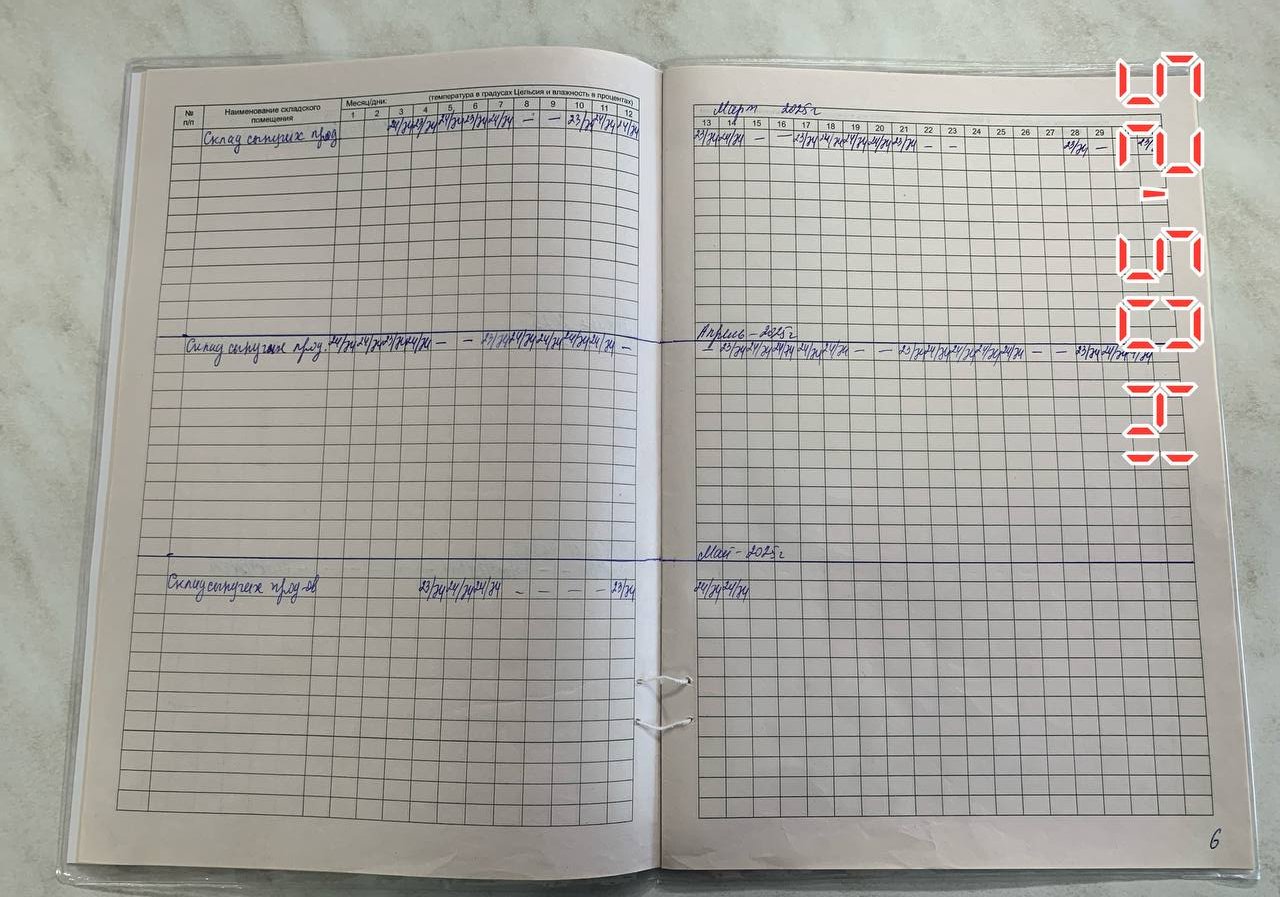 № п/п
Наименование складского помещения
Месяц/дни:
(температура в градусах Цельсия и влажность в процентах)
1 2 3 4 5 6 7 8 9 10 11 12
Склад сыпучих прод. 24/74 23/74 24/74 23/74 24/74 — — 23/74 24/74 24/74
Март 2025г
13 14 15 16 17 18 19 20 21 22 23 24 25 26 27 28 29
23/74 24/74 — — 23/74 24/74 24/74 24/74 23/74 — — 23/74 — 23/
Склад сыпучих прод. 24/74 24/74 23/74 24/74 — — 23/74 24/74 24/74 24/74 24/74 —
Апрель - 2025г
23/74 24/74 24/74 24/74 24/74 — — 23/74 24/74 24/74 24/74 24/74 — — 23/74 24/74
Склад сыпучих прод-ов 23/74 24/74 24/74 — — — — 23/74
Май - 2025г
24/74 24/74
6